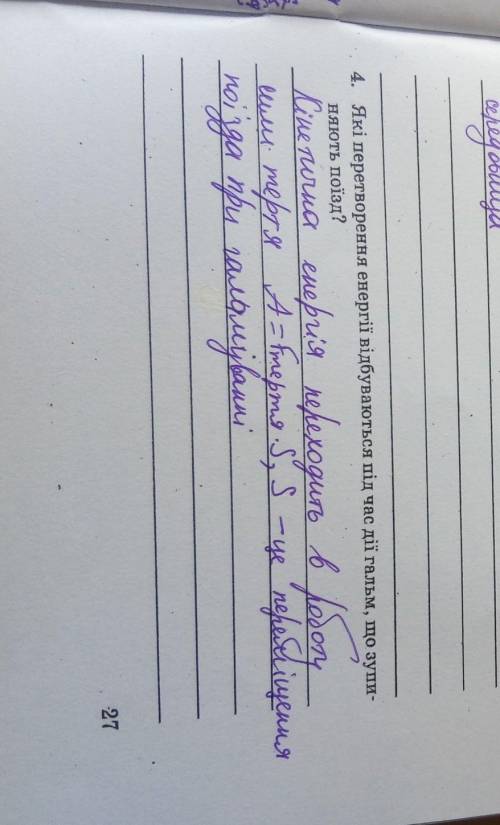 середовища
4. Які перетворення енергії відбуваються під час дії гальм, що зупи-
няють поїзд?
Кінетична енергія переходить в роботу
сили тертя A = Fтертя · S, S – це переміщення
поїзда при гальмуванні
27